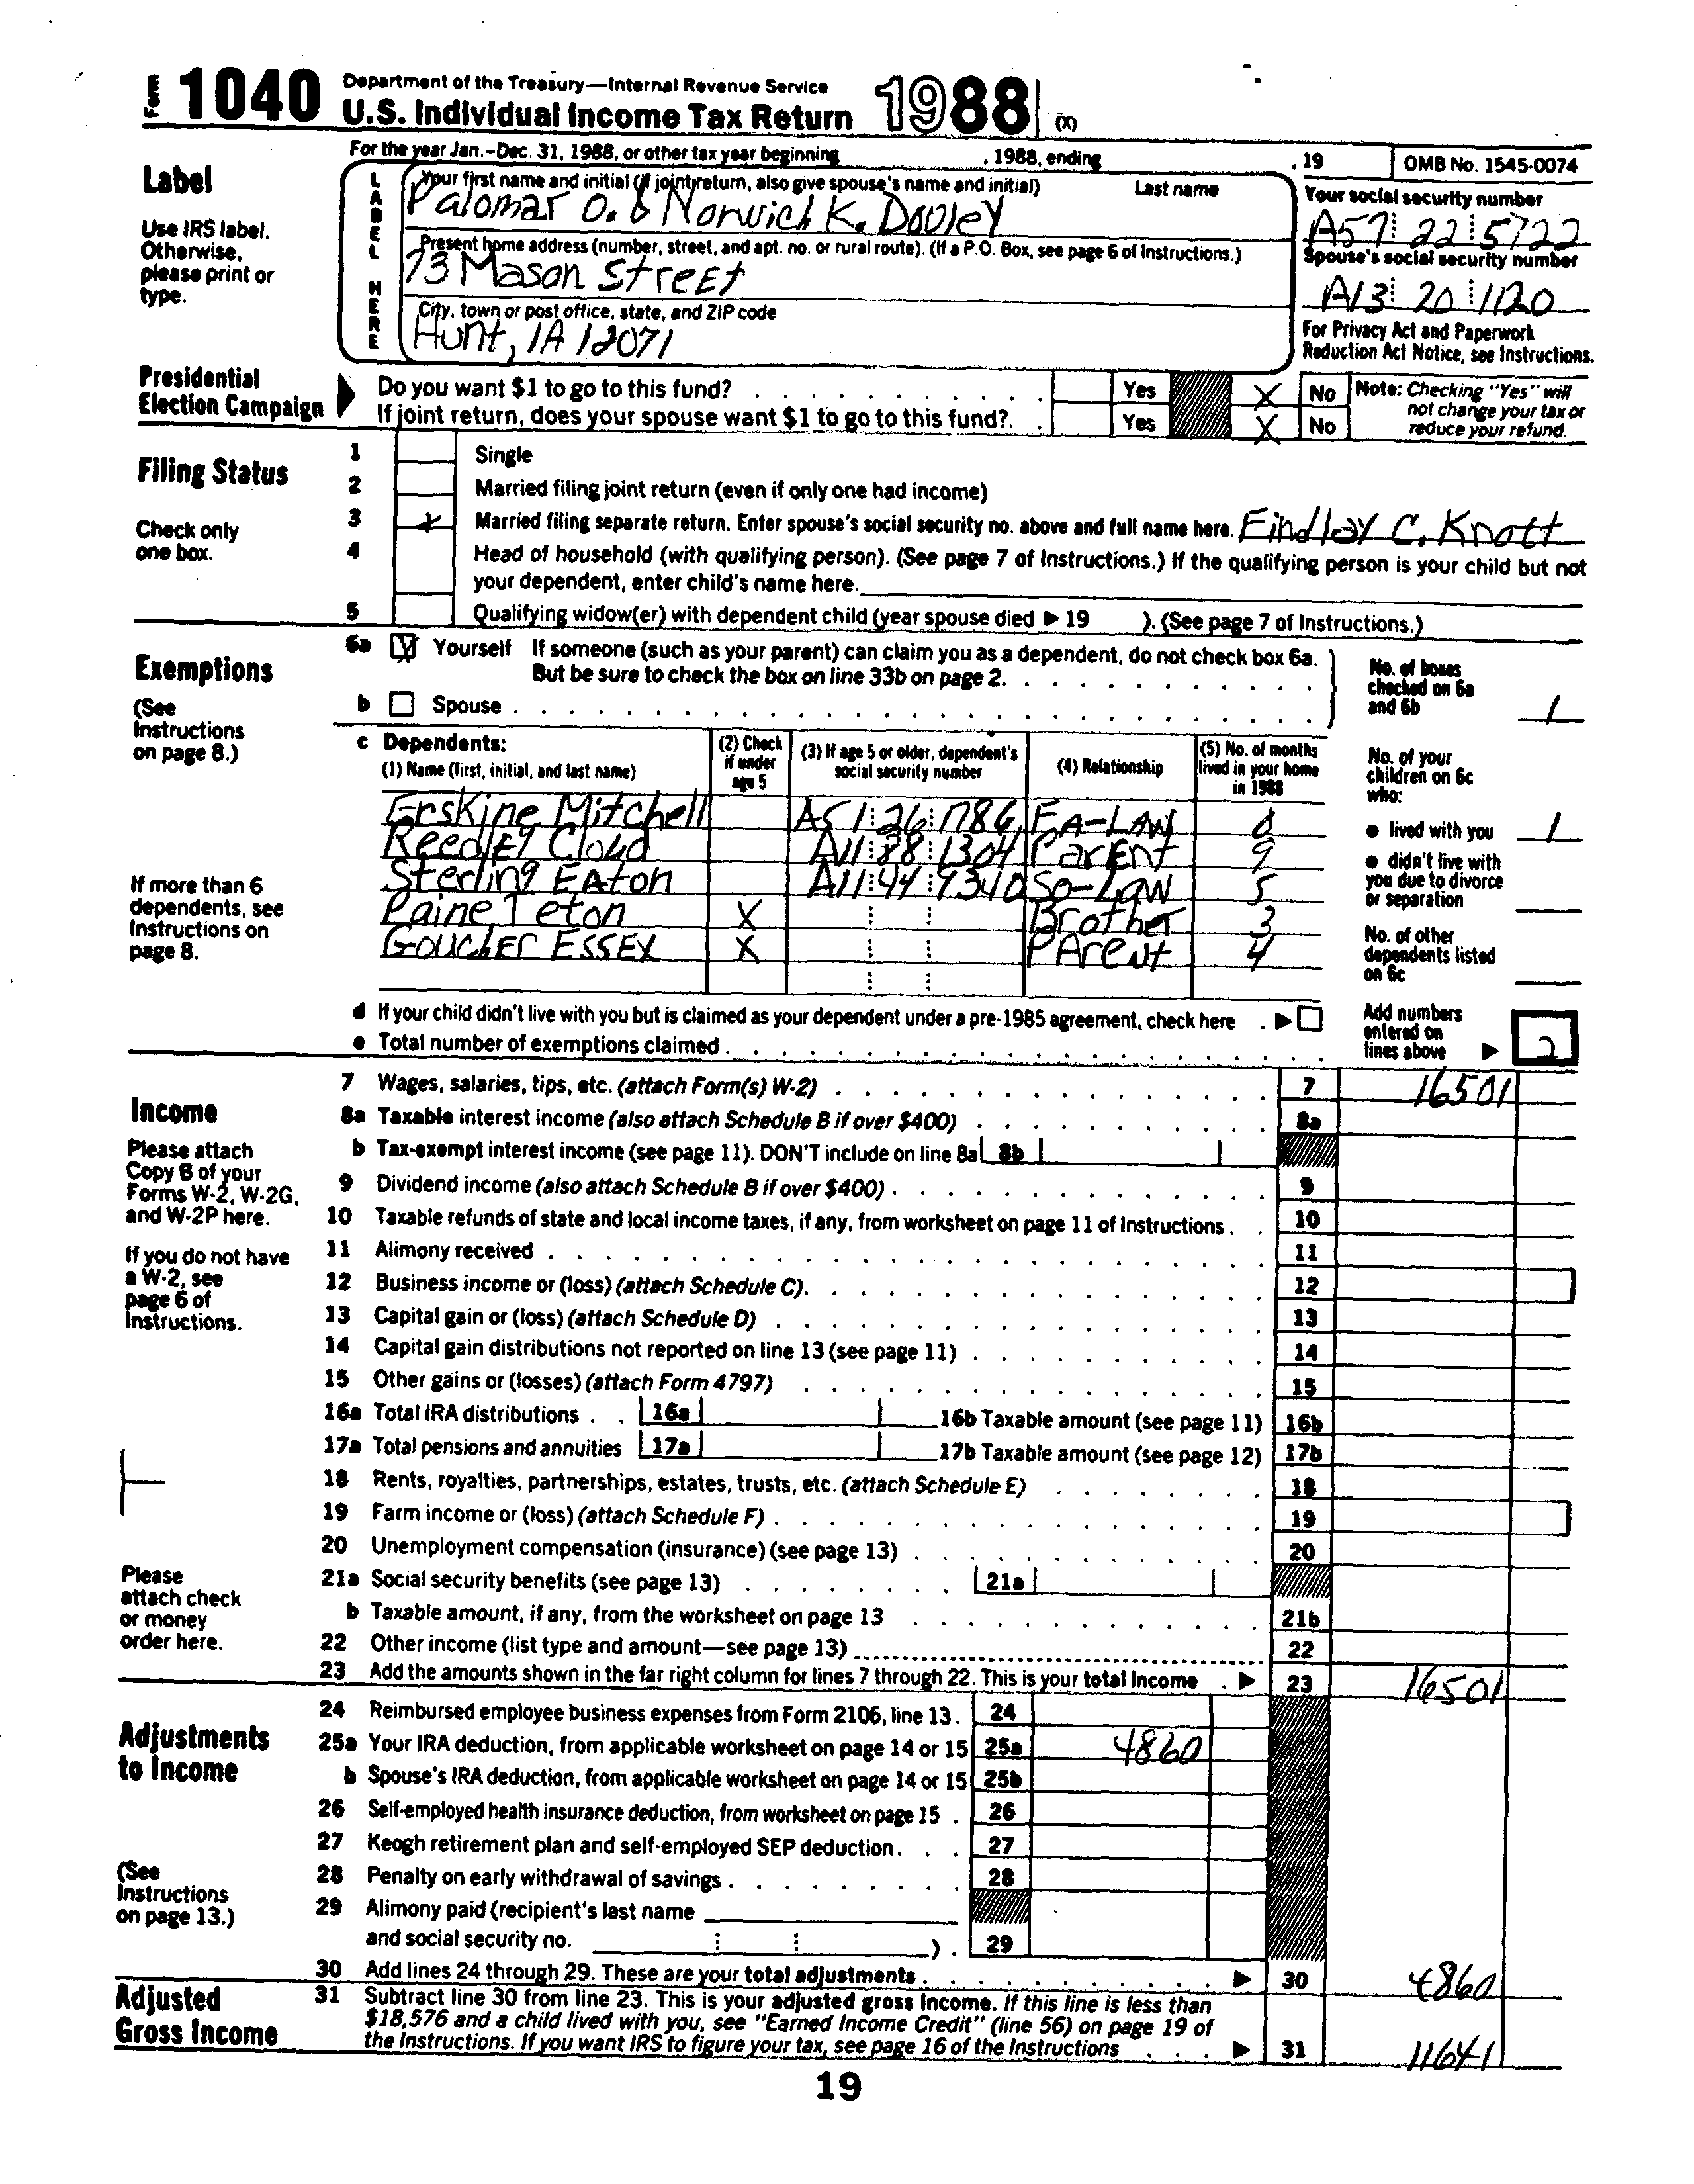 Form 1040 Department of the Treasury—Internal Revenue Service
U.S. Individual Income Tax Return 1988 (X)
For the year Jan.–Dec. 31, 1988, or other tax year beginning , 1988, ending , 19 OMB No. 1545-0074
Label
Use IRS label.
Otherwise,
please print or
type.
LABEL HERE
Your first name and initial (if joint return, also give spouse's name and initial) Last name
Palomar O. & Norwich K. Dooley
Your social security number
A57 22 5722
Present home address (number, street, and apt. no. or rural route). (If a P.O. Box, see page 6 of Instructions.)
73 Mason Street
Spouse's social security number
A13 20 1120
City, town or post office, state, and ZIP code
Hunt, IA 12071
For Privacy Act and Paperwork
Reduction Act Notice, see Instructions.
Presidential
Election Campaign
Do you want $1 to go to this fund? Yes X No
If joint return, does your spouse want $1 to go to this fund? Yes X No
Note: Checking "Yes" will
not change your tax or
reduce your refund.
Filing Status
Check only
one box.
1 Single
2 Married filing joint return (even if only one had income)
3 X Married filing separate return. Enter spouse's social security no. above and full name here. Findlay C. Knott
4 Head of household (with qualifying person). (See page 7 of Instructions.) If the qualifying person is your child but not
your dependent, enter child's name here.
5 Qualifying widow(er) with dependent child (year spouse died ▶ 19 ). (See page 7 of Instructions.)
Exemptions
(See
Instructions
on page 8.)
6a X Yourself If someone (such as your parent) can claim you as a dependent, do not check box 6a.
But be sure to check the box on line 33b on page 2.
b Spouse
No. of boxes
checked on 6a
and 6b 1
c Dependents:
(1) Name (first, initial, and last name)
(2) Check
if under
age 5
(3) If age 5 or older, dependent's
social security number
(4) Relationship
(5) No. of months
lived in your home
in 1988
Erskine Mitchell A51 26 1786 FA-LAW 0
Reedley Cloud A11 88 1304 Parent 9
Sterling Eaton A11 44 9340 So-Law 5
Paine Teton X Brother 3
Goucher Essex X Parent 4
If more than 6
dependents, see
Instructions on
page 8.
No. of your
children on 6c
who:
● lived with you 1
● didn't live with
you due to divorce
or separation
No. of other
dependents listed
on 6c
d If your child didn't live with you but is claimed as your dependent under a pre-1985 agreement, check here ▶
e Total number of exemptions claimed
Add numbers
entered on
lines above ▶ 2
Income
Please attach
Copy B of your
Forms W-2, W-2G,
and W-2P here.
If you do not have
a W-2, see
page 6 of
Instructions.
Please
attach check
or money
order here.
7 Wages, salaries, tips, etc. (attach Form(s) W-2) 7 16501
8a Taxable interest income (also attach Schedule B if over $400) 8a
b Tax-exempt interest income (see page 11). DON'T include on line 8a 8b
9 Dividend income (also attach Schedule B if over $400) 9
10 Taxable refunds of state and local income taxes, if any, from worksheet on page 11 of Instructions 10
11 Alimony received 11
12 Business income or (loss) (attach Schedule C) 12
13 Capital gain or (loss) (attach Schedule D) 13
14 Capital gain distributions not reported on line 13 (see page 11) 14
15 Other gains or (losses) (attach Form 4797) 15
16a Total IRA distributions 16a 16b Taxable amount (see page 11) 16b
17a Total pensions and annuities 17a 17b Taxable amount (see page 12) 17b
18 Rents, royalties, partnerships, estates, trusts, etc. (attach Schedule E) 18
19 Farm income or (loss) (attach Schedule F) 19
20 Unemployment compensation (insurance) (see page 13) 20
21a Social security benefits (see page 13) 21a
b Taxable amount, if any, from the worksheet on page 13 21b
22 Other income (list type and amount—see page 13) 22
23 Add the amounts shown in the far right column for lines 7 through 22. This is your total income ▶ 23 16501
Adjustments
to Income
(See
Instructions
on page 13.)
24 Reimbursed employee business expenses from Form 2106, line 13. 24
25a Your IRA deduction, from applicable worksheet on page 14 or 15 25a 4860
b Spouse's IRA deduction, from applicable worksheet on page 14 or 15 25b
26 Self-employed health insurance deduction, from worksheet on page 15 26
27 Keogh retirement plan and self-employed SEP deduction 27
28 Penalty on early withdrawal of savings 28
29 Alimony paid (recipient's last name
and social security no. ) 29
30 Add lines 24 through 29. These are your total adjustments ▶ 30 4860
Adjusted
Gross Income
31 Subtract line 30 from line 23. This is your adjusted gross income. If this line is less than
$18,576 and a child lived with you, see "Earned Income Credit" (line 56) on page 19 of
the Instructions. If you want IRS to figure your tax, see page 16 of the Instructions ▶ 31 11641
19